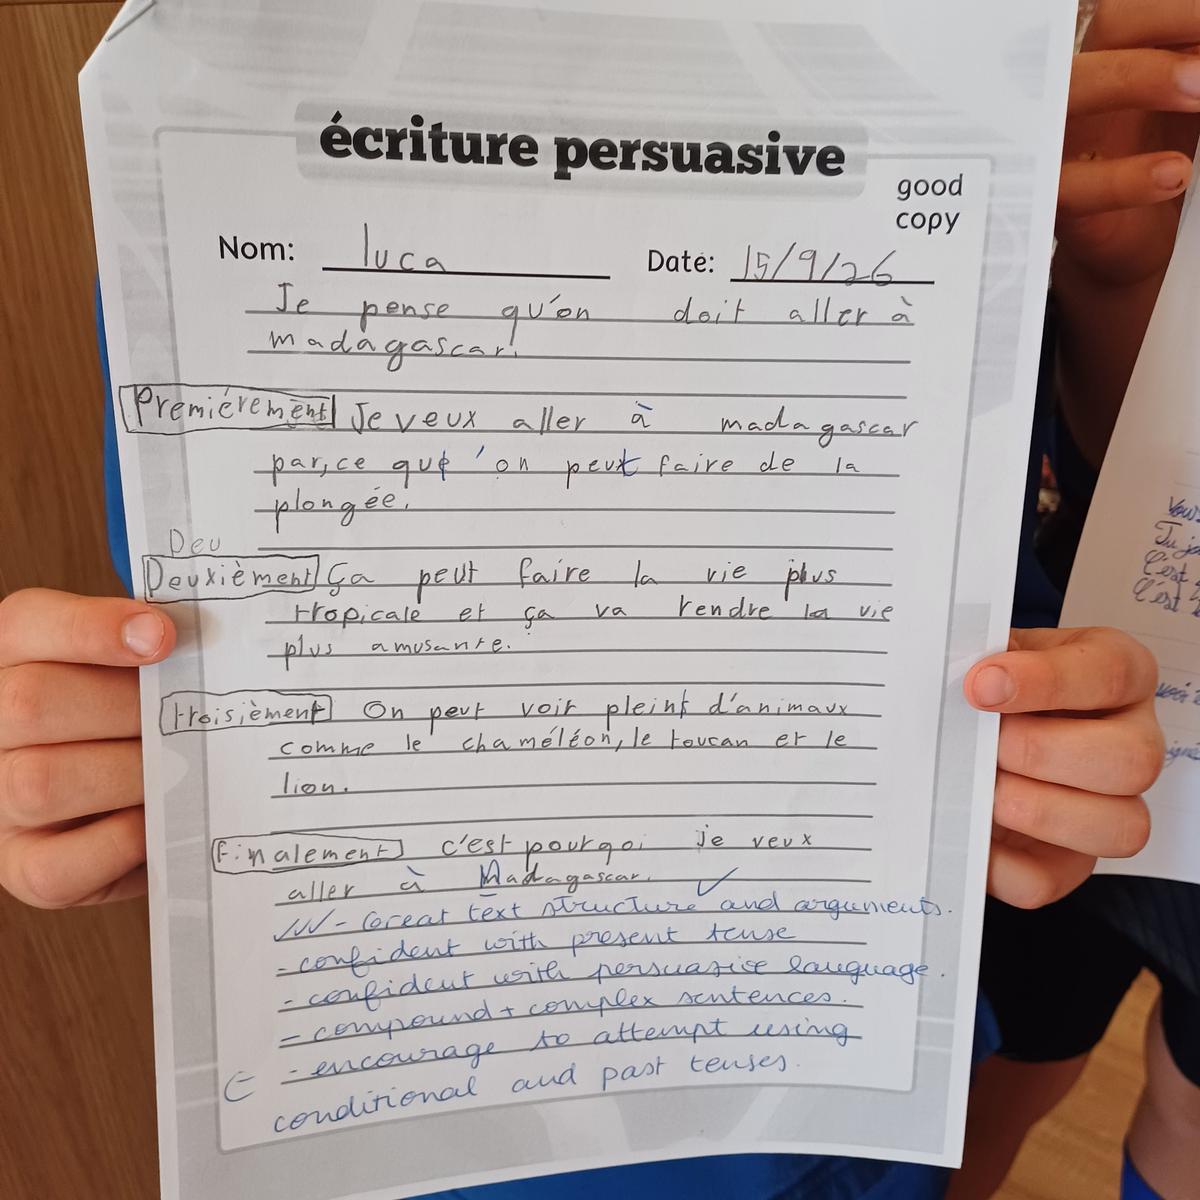 écriture persuasive
good
copy
Nom: luca Date: 15/9/26
Je pense qu'on doit aller à
madagascar!
Premiérement Je veux aller à madagascar
par,ce qu'on peut faire de la
plongée.
Deu
Deuxièment Ça peut faire la vie plus
tropicale et ça va rendre la vie
plus amusante.
troisièment On peut voir pleint d'animaux
comme le chaméléon, le toucan et le
lion.
Finalement c'est pourqoi je veux
aller à Madagascar.
- Great text structure and arguments.
- confident with present tense
- confident with persuasive language.
- compound + complex sentences.
- encourage to attempt using
conditional and past tenses.
Vous
C'est
C'est